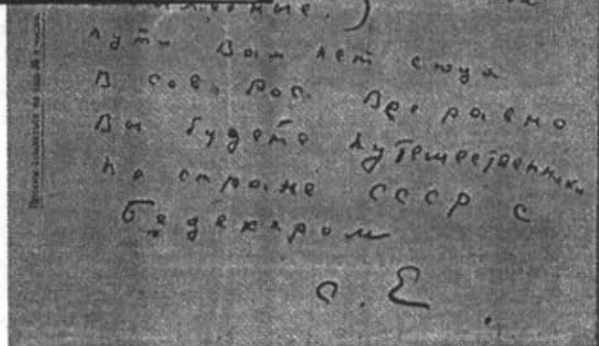 пути Вам нет сюда
В сов. Рос. Все равно
Вы будете путешественники
по стране СССР с
бедекером
С. Е.